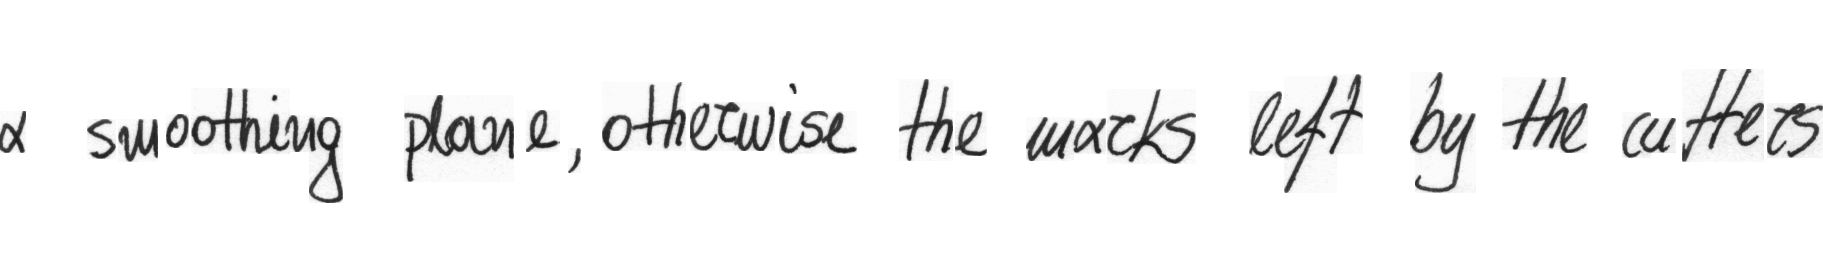 a smoothing plane, otherwise the marks left by the cutters